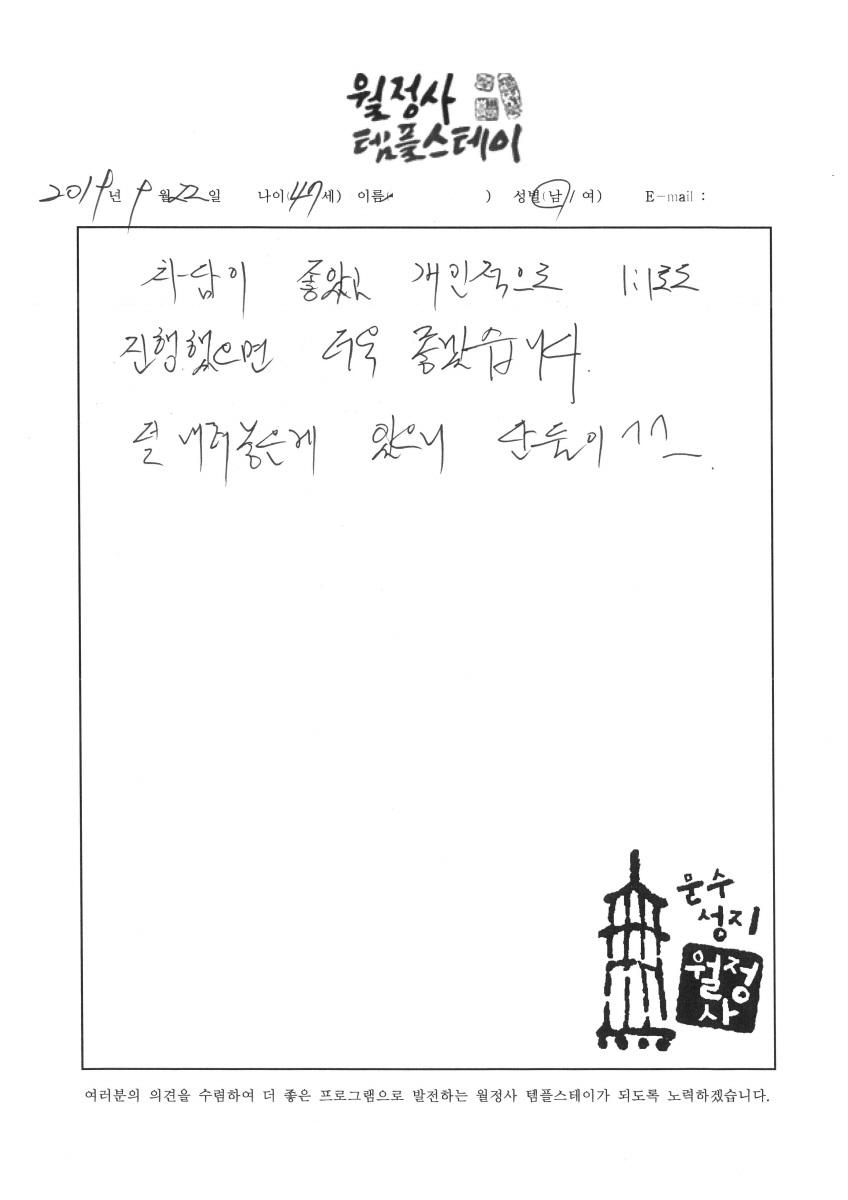 월정사
템플스테이
2019년 9월 22일 나이(47세) 이름( ) 성별(남/여) E-mail :
차담이 좋았고 개인적으로 1:1로도
진행했으면 더욱 좋겠습니다.
덜 내려놓은게 있으니
문수
성지
월정
사
여러분의 의견을 수렴하여 더 좋은 프로그램으로 발전하는 월정사 템플스테이가 되도록 노력하겠습니다.